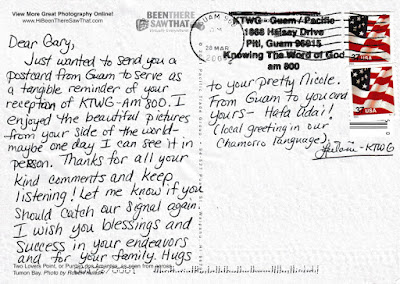 View More Great Photography Online!
www.HiBeenThereSawThat.com
BEENTHERE
SAWTHAT
Dear Gary,
Just wanted to send you a
postcard from Guam to serve as
a tangible reminder of your
reception of KTWG-AM 800. I
enjoyed the beautiful pictures
from your side of the world-
maybe one day I can see it in
person. Thanks for all your
kind comments and keep
listening! Let me know if you
should catch our signal again.
I wish you blessings and
success in your endeavors
and for your family. Hugs
Two Lovers Point, or Puntan dos Amantes, as seen from across
Tumon Bay. Photo by
GUAM
28 MAR
KTWG - Guam / Pacific
1868 Halsey Drive
Piti, Guam 96915
Knowing The Word of God
am 800
37 USA
37 USA
to your pretty Nicole.
From Guam to you and
yours- Hafa Adai!
(local greeting in our
Chamorro language).
-KTWG